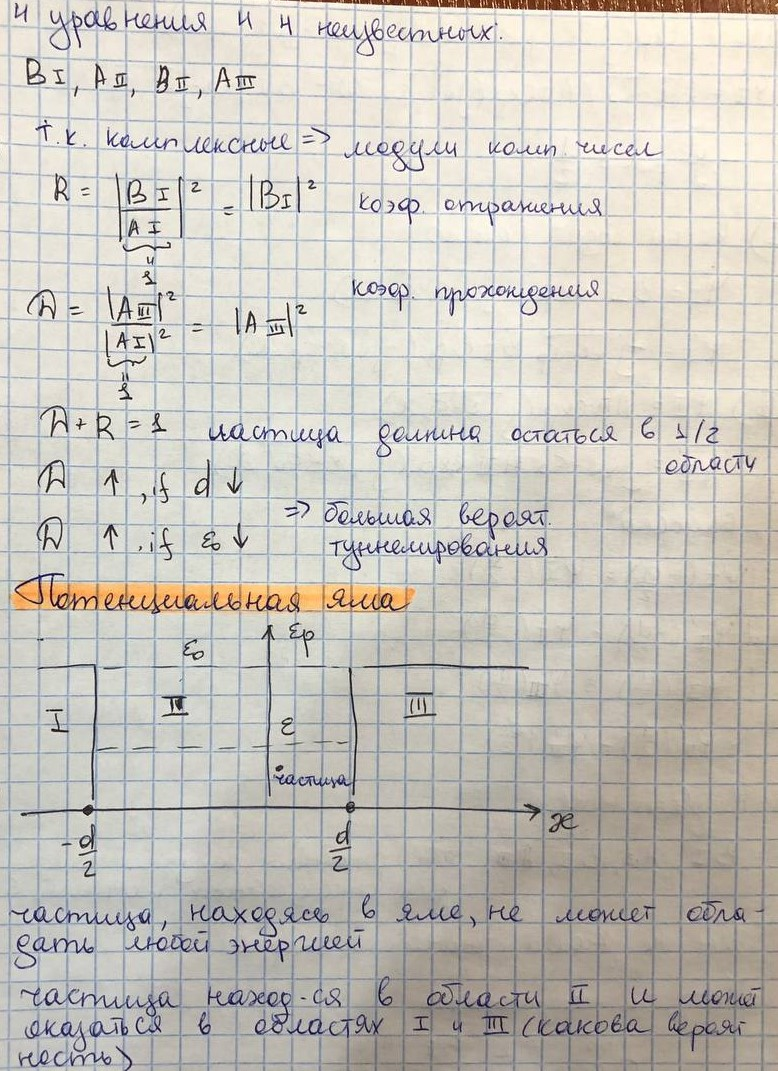 4 уравнения и 4 неизвестных:
B I, A II, B II, A III
т.к. комплексные => модули комп. чисел
R = |B I / A I|² = |B I|² коэф. отражения
"
1
D = |A III|² / |A I|² = |A III|² коэф. прохождения
"
1
D + R = 1 частица должна остаться в 1/2
области
D ↑, if d ↓
=> большая вероят.
D ↑, if ε₀ ↓
туннелирования
Потенциальная яма
ε₀ εp
I II III
ε
частица
x
-d/2 d/2
частица, находясь в яме, не может обла-
дать любой энергией
частица наход-ся в области II и может
оказаться в областях I и III (какова вероят
ность)